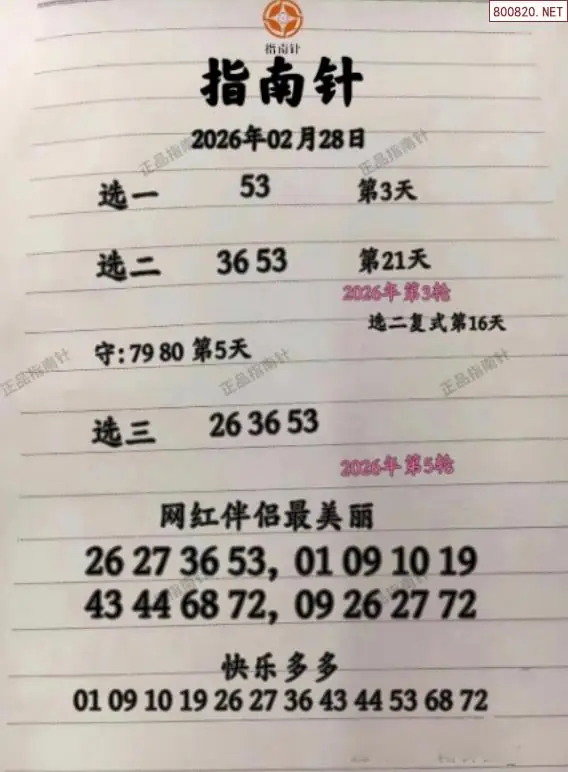 800820.NET
指南针
指南针
2026年02月28日
正品指南针 正品指南针
选一 53 第3天
选二 36 53 第21天
2026年第3轮
选二复式第16天
守:79 80 第5天
正品指南针 正品指南针 正品指南针
选三 26 36 53
2026年第5轮
网红伴侣最美丽
26 27 36 53, 01 09 10 19
43 44 68 72, 09 26 27 72
正品指南针 正品指南针
快乐多多
01 09 10 19 26 27 36 43 44 53 68 72